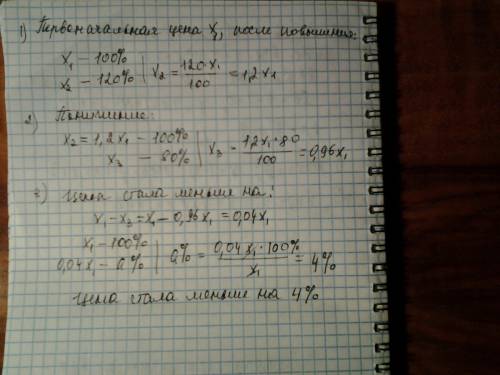 1) Первоначальная цена X₁, после повышения:
X₁ – 100%
X₂ – 120% | X₂ = 120·X₁/100 = 1,2X₁
2) Понижение:
X₂ = 1,2X₁ – 100%
X₃ – 80% | X₃ = 1,2X₁·80/100 = 0,96X₁
3) Цена стала меньше на:
X₁ – X₃ = X₁ – 0,96X₁ = 0,04X₁
X₁ – 100%
0,04X₁ – a% | a% = 0,04X₁·100%/X₁ = 4%
Цена стала меньше на 4%